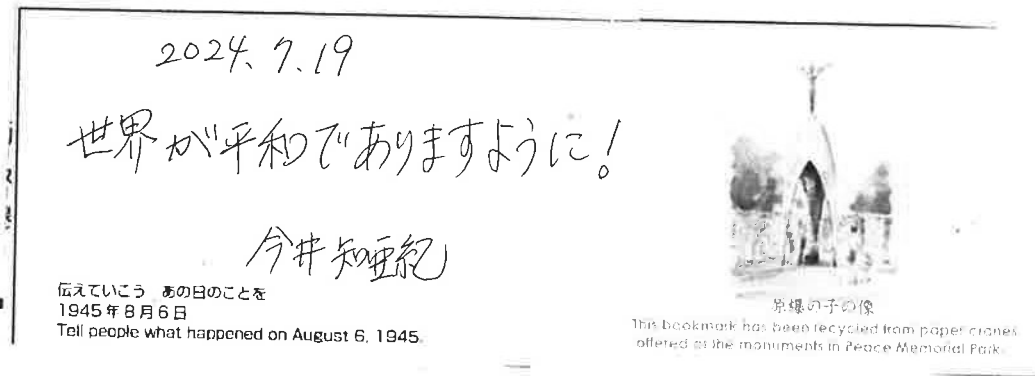 2024.7.19
世界が平和でありますように!
今井知亜紀
伝えていこう あの日のことを
1945年8月6日
Tell people what happened on August 6, 1945.
原爆の子の像
This bookmark has been recycled from paper cranes
offered at the monuments in Peace Memorial Park.